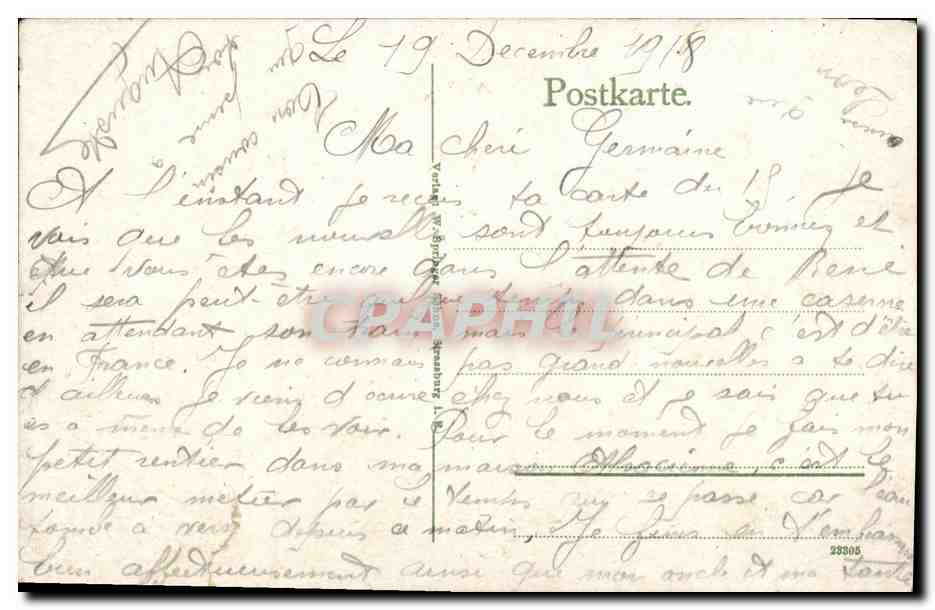 Le 19 Decembre 1918
Postkarte.
Ma cheré Germaine
A l'instant je reçois ta carte du 15 Je
vois que les nouvelles sont toujours bonnes et
que vous êtes encore dans l'attente de René
il sera peut-être quelque temps dans une caserne
en attendant son train mais le principal c'est d'être
en France. Je ne connais pas grand nouvelles a te dire
d'ailleurs je viens d'écrire chez nous et je sais que tu
es a même de les voir. Pour le moment je fais mon
petit rentier dans ma maison Alsacienne, c'est le
meilleur métier par le temps qui se passe car l'eau
tombe a verse depuis ce matin, Je finis en t'embrassant
bien affectueusement ainsi que mon oncle et ma tante
Ton cousin
qui
Verlag: W. Springer Söhne, Strassburg i. E.
23305
CPAPHIL